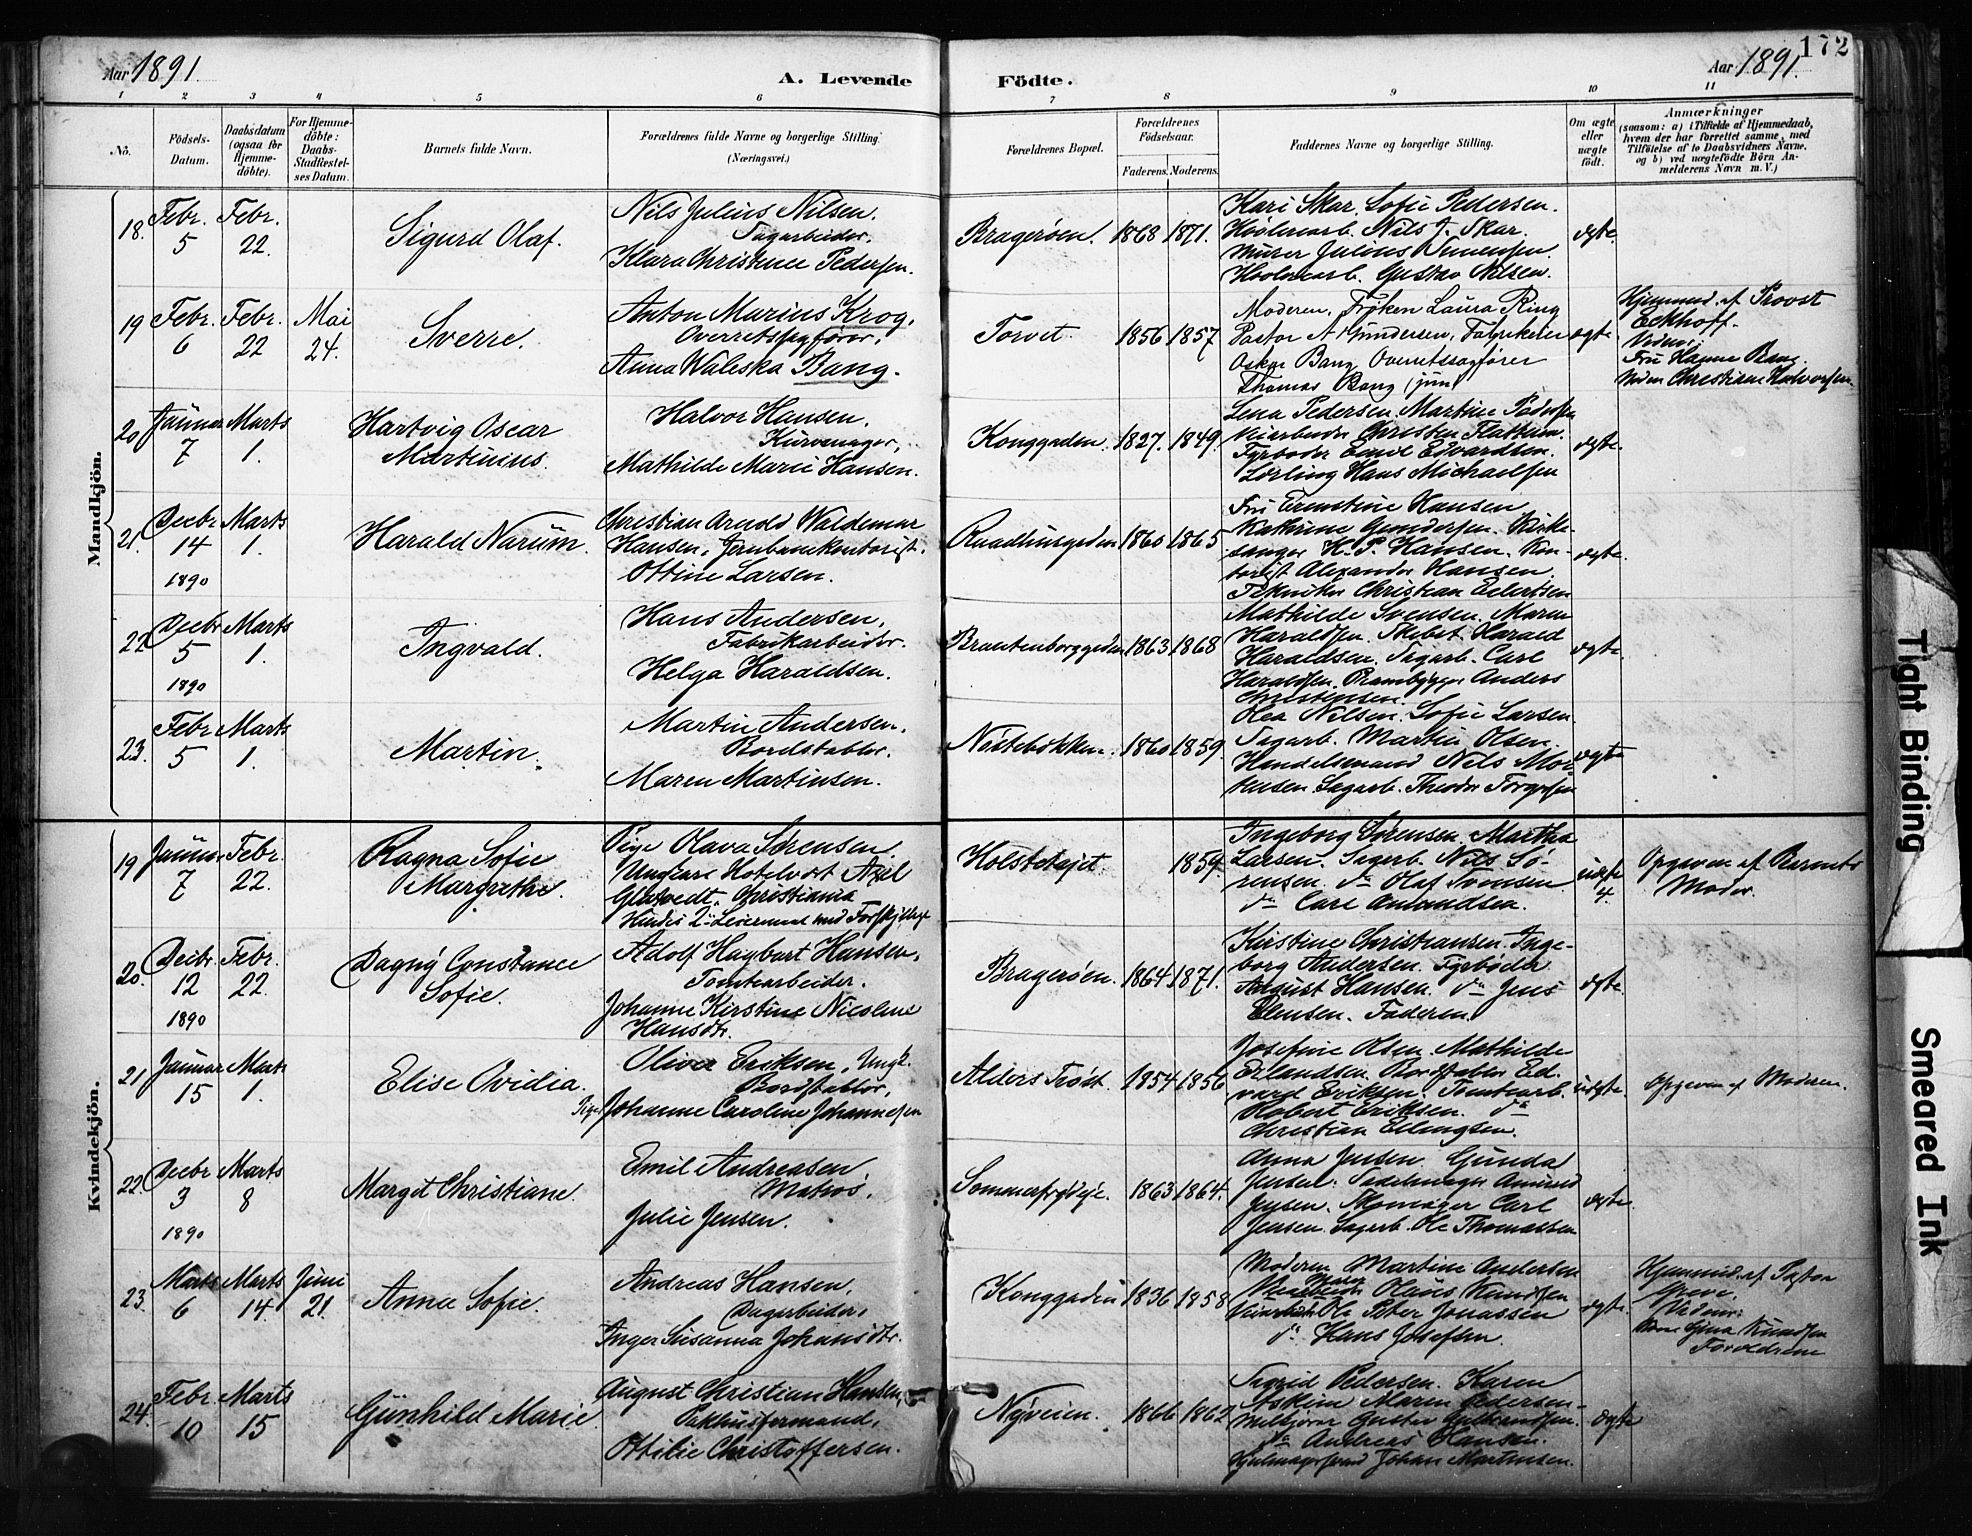 Aar 1891.
A. Levende
Födte.
Aar 1891.
172
1 2 3 4 5 6 7 8 9 10 11
No.
Födsels-
Datum.
Daabsdatum
(ogsaa for
Hjemme-
döbte).
For Hjemme-
döbte:
Daabs-
Stadfæstel-
ses Datum.
Barnets fulde Navn.
Forældrenes fulde Navne og borgerlige Stilling
(Næringsvei.)
Forældrenes Bopæl.
Forældrenes
Födselsaar.
Faderens. Moderens.
Faddernes Navne og borgerlige Stilling.
Om ægte
eller
uægte
födt.
Anmærkninger
(saasom: a) i Tilfælde af Hjemmedaab,
hvem der har forrettet samme, med
Tilföielse af to Daabsvidners Navne,
og b) ved uægtefödte Börn An-
melderens Navn m. V.)
Mandkjön.
18. Febr. 5 Febr. 22.
Sigurd Olaf.
Nils Julius Nilsen.
Sagarbeider.
Klara Christence Pedersen.
Bragerøen. 1868 1871.
Kari Skar. Sofie Pedersen.
Høvleriarb. Nils J. Skar.
Murer Julius Simensen.
Høvleriarb. Gustav Nilsen.
ægte.
19 Febr. 6 Febr. 22 Mai 24.
Sverre.
Anton Marius Krog,
Overretssagfører,
Anna Waleska Bang.
Torvet. 1856 1857
Moderen, Frøken Laura Ring
Pastor A. Gundersen, Fabrikeier
Oskar Bang, Overretssagfører
Thomas Bang (jun)
ægte
Hjemmed. af Provst
Eckhoff.
Vidner:
Fru Hanna Bang.
Christiane Halvorsen.
20 Januar 7 Marts 1.
Hartvig Oscar
Martinius.
Halvor Hansen,
Kurvmager,
Mathilde Marie Hansen.
Konggaden. 1827. 1849.
Lena Pedersen. Martine Pedersen
Veiarbeider Christen Flattum.
Fyrbøder Emil Edvardsen.
Lærling Hans Michaelsen
ægte.
21. Decbr 14 1890 Marts 1.
Harald Narum.
Christian Arndo Waldemar
Hansen, Jernbanekontorist.
Ottine Larsen.
Raadhusgaden 1860 1865
Fru Ernstine Hansen
Kathrine Gundersen. Kirke-
sanger H. P. Hansen. Kon-
torist Alexander Hansen
Tekniker Christian Eilertsen
ægte.
22 Decbr 5 1890 Marts 1.
Ingvald.
Hans Andersen,
Fabrikarbeider.
Helga Haraldsen.
Brantenborggaden 1863 1868
Mathilde Svensen. Maren
Haraldsen. Skibst. Harald
Haraldsen. Sagarb. Carl
Haraldsen. Prambygger Anders
Christensen.
ægte.
23. Febr 5 Marts 1.
Martin.
Martin Andersen.
Bordstabler.
Maren Martinsen.
Nøstebækken. 1860 1859.
Olea Nilsen. Sofie Larsen
Sagarb. Martin Olsen.
Handelsmand Nils Mor-
tensen. Sagarb. Theodor Torgersen
ægte
Kvindekjön.
19 Januar 7 Febr. 22.
Ragna Sofie
Margrethe.
Pige Olava Sørensen
Ungkarl Hotelvert Axel
Glatvedt. Christiania
Hendes 2det Leiermaal med Forskjellige
Holstehejet. 1859
Ingeborg Sørensen. Martha
Larsen. Sagarb. Nils Sø-
rensen. do Olaf Svensen
do Carl Amundsen.
uægte
4.
Opgiven af Barnets
Moder.
20. Decbr. 12 1890 Febr. 22.
Dagny Constance
Sofie.
Adolf Hagbart Hansen,
Tomtearbeider.
Johanne Kirstine Nicoline
Hansdtr.
Bragerøen. 1864 1871.
Kirstine Christiansen. Inge-
borg Andersen. Fyrbøder
August Hansen. do Jens
Elensen. Faderen.
ægte.
21 Januar 15 Marts 1.
Elise Ovidia.
Oliver Eriksen, Ungk.
Bordstabler,
Pige Johanne Caroline Johannesen
Alders Trøst. 1854 1856
Josefine Olsen. Mathilde
Erlandsen. Bordstabler Ed-
vard Eriksen. Tomtearb.
Robert Eriksen. do
Christian Ellingsen.
uægte.
Opgiven af Moderen.
22. Decbr 3 1890 Marts 8
Margit Christiane.
Emil Andreasen
Matros,
Julie Jensen.
Sommerfrydveie. 1863 1864.
Anna Jensen. Gunda
Jensen. Sadelmager Amund
Jensen. Skomager Carl
Jensen. Sagarb. Ole Thomassen
ægte.
23. Marts 6 Marts 14 Juni 21.
Anna Sofie.
Andreas Hansen,
Dagarbeider,
Inger Susanna Johansdtr.
Konggaden 1836 1858
Moderen Martine Andersen
Olaus Knudsen
Ole Peter Jonassen
do Hans Josefsen.
ægte.
Hjemmed. af Pastor
Greve.
Vidner:
Gina Knudsen
Forældrene
24. Febr 10 Marts 15
Gunhild Marie
August Christian Hansen,
Pakhusformand,
Ottilie Christoffersen.
Nyveien. 1866 1862
Sigrid Pedersen. Karen
Askim Maren Pedersen-
Gustav Gulbrandsen.
do Andreas Hansen.
Johan Martinsen.
ægte
Tight Binding
Smeared Ink